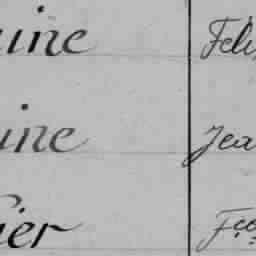 uine Feli
uine Jea
ier Fco